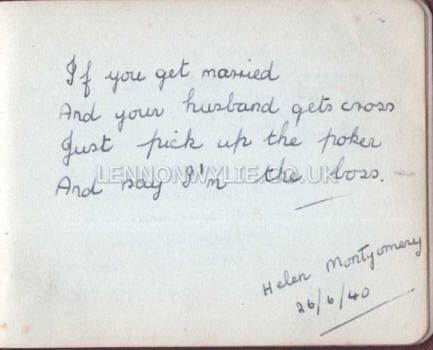 If you get married
And your husband gets cross
Just pick up the poker
LENNONWYLIE.CO.UK
And say I'm the boss.
Helen Montgomery
26/6/40